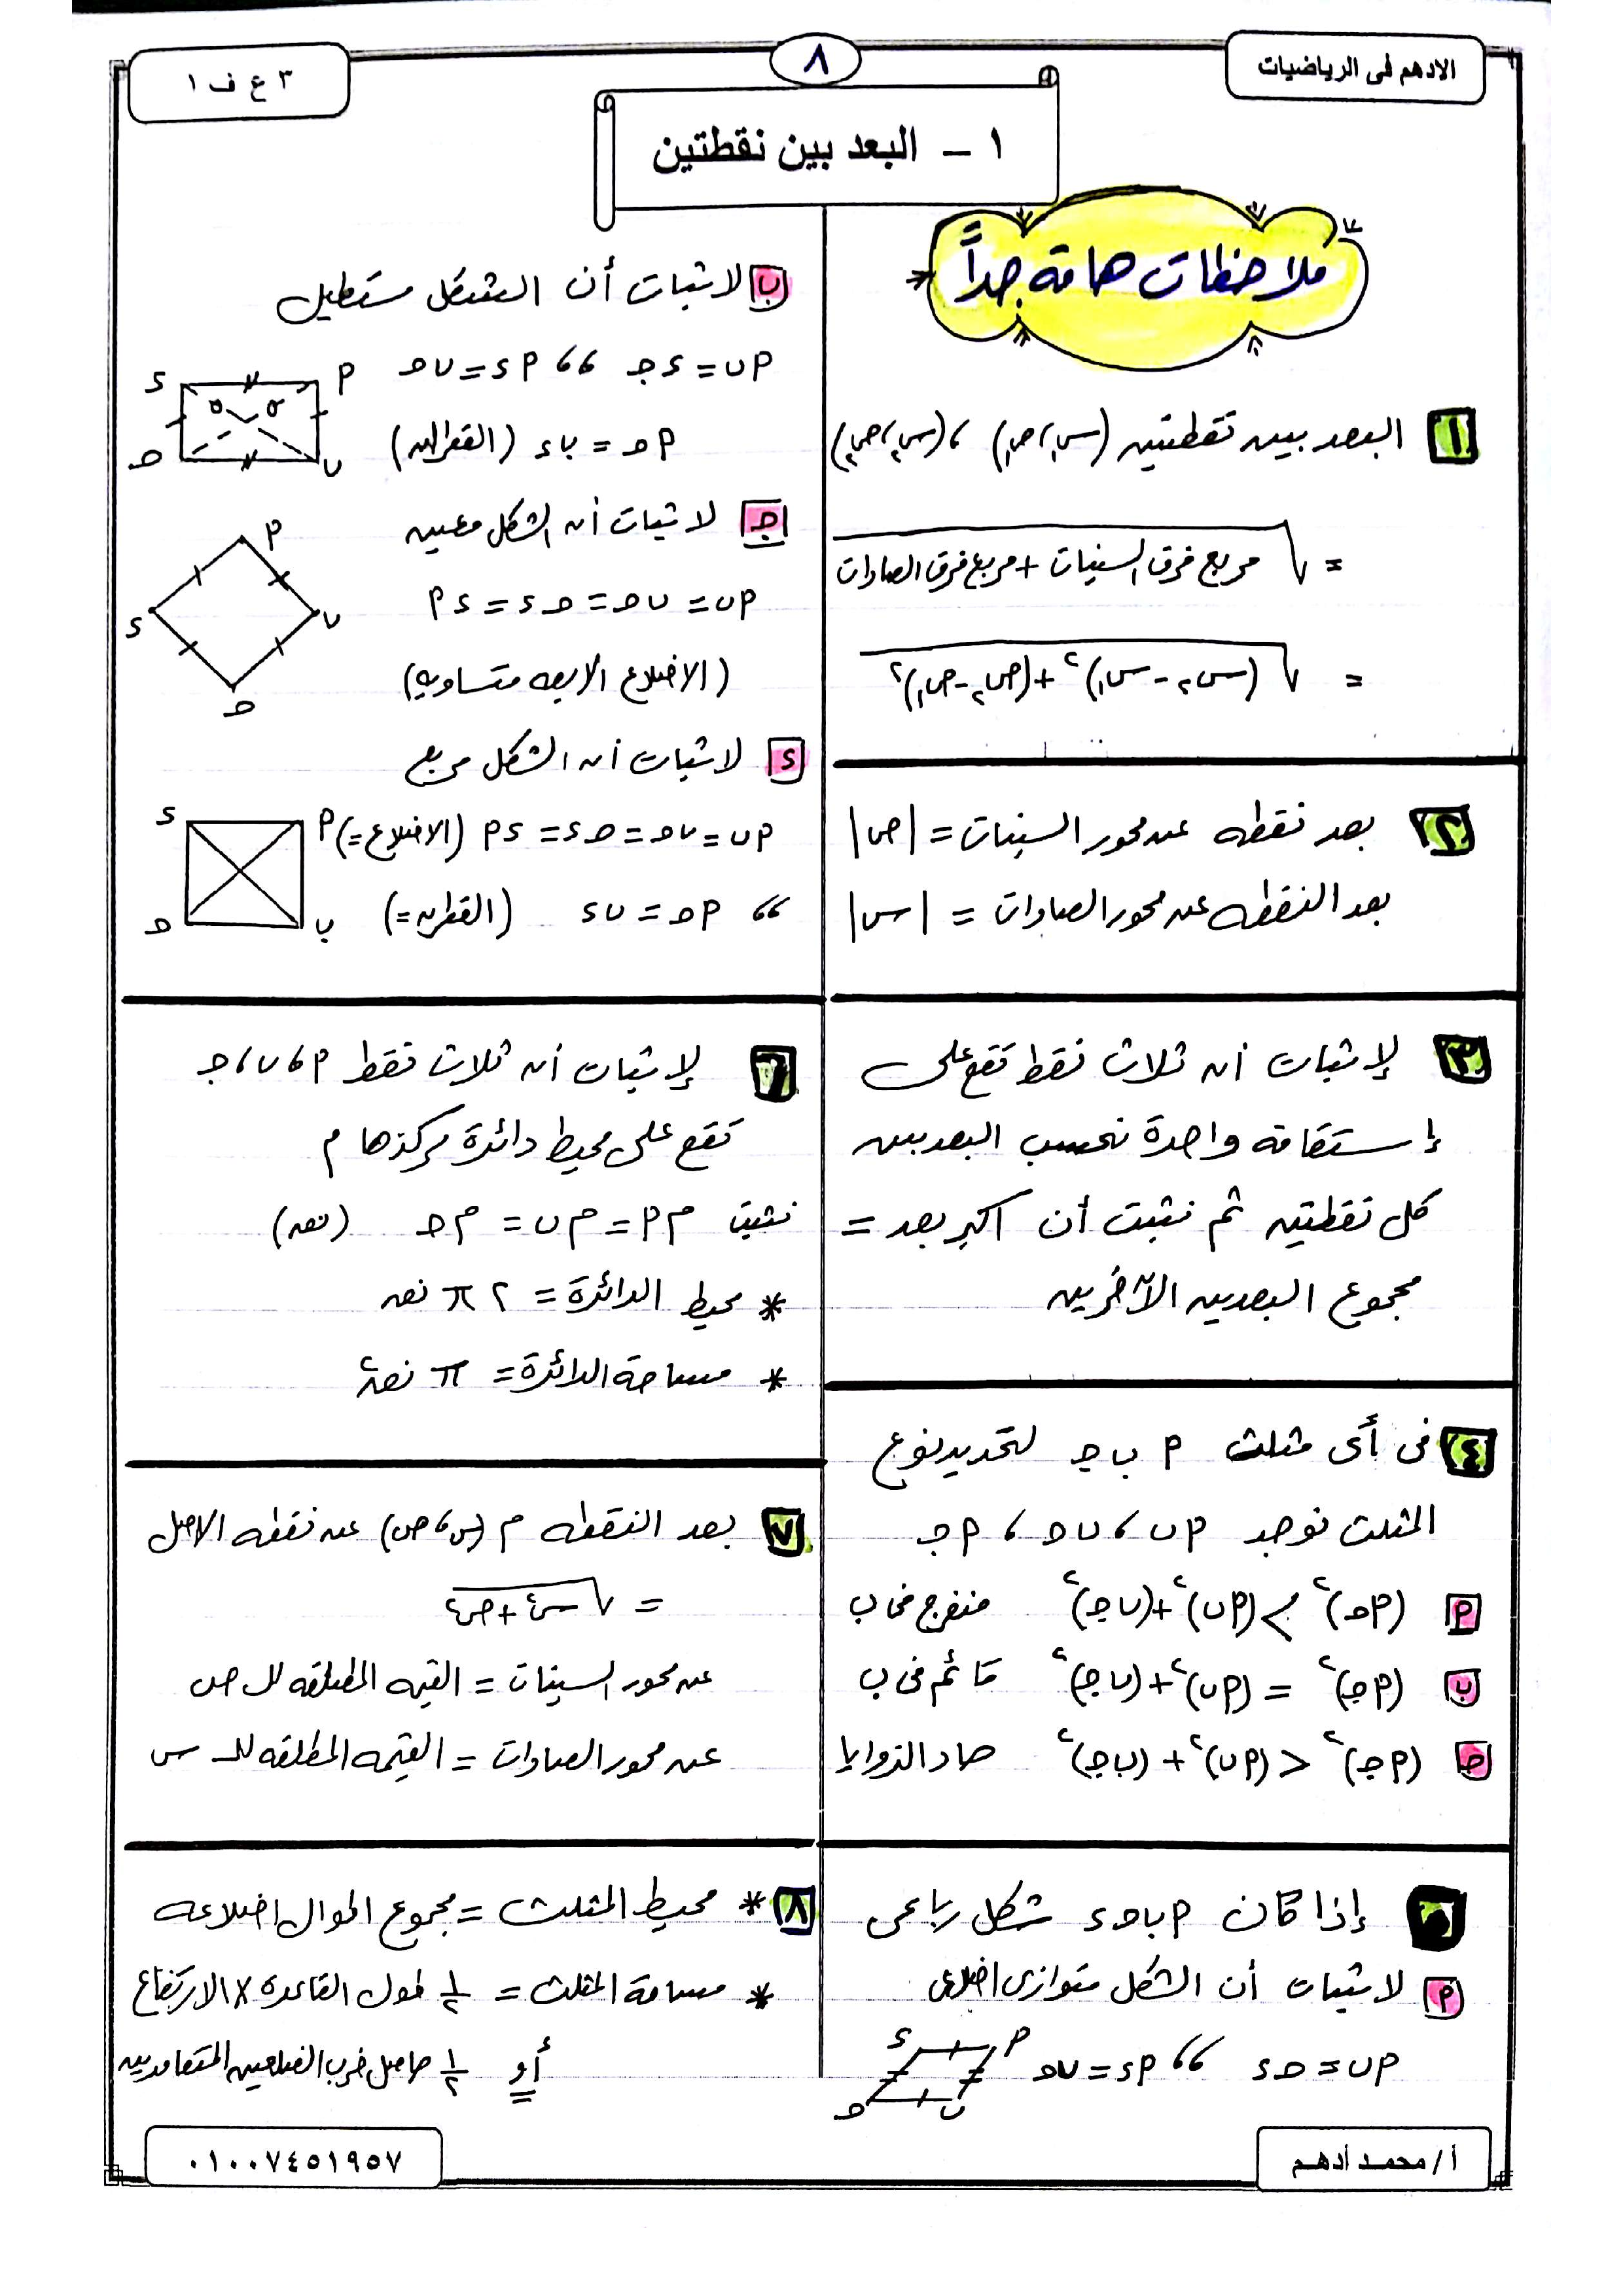 الادهم فى الرياضيات
٨
٣ ع ف ١
١ - البعد بين نقطتين
ملاحظات هامة جداً
١ البعد بين نقطتين (س١، ص١) ، (س٢، ص٢)
= √(مربع فرق السينات + مربع فرق الصادات)
= √((س٢ - س١)² + (ص٢ - ص١)²)
٢ بعد نقطه عن محور السينات = |ص|
بعد النقطه عن محور الصادات = |س|
٣ لإثبات أن ثلاث نقط تقع على
إستقامة واحدة نحسب البعد بين
كل نقطتين ثم نثبت أن أكبر بعد =
مجموع البعدين الآخرين
٤ فى أى مثلث أ ب جـ لتحديد نوع
المثلث نوجد أب ، ب جـ ، أ جـ
أ (أ جـ)² > (أ ب)² + (ب جـ)² منفرج فى ب
ب (أ جـ)² = (أ ب)² + (ب جـ)² قائم فى ب
جـ (أ جـ)² < (أ ب)² + (ب جـ)² حاد الزوايا
٥ إذا كان أ ب جـ ء شكل رباعى
أ لاثبات أن الشكل متوازى اضلاع
أ ب = جـ ء ، أ ء = ب جـ
أ
ء
ب
جـ
ب لاثبات أن الشكل مستطيل
أ ب = ء جـ ، أ ء = ب جـ
أ جـ = ب ء (القطران)
أ
ء
ب
جـ
جـ لاثبات أن الشكل معين
أ ب = ب جـ = جـ ء = ء أ
(الاضلاع الاربعه متساويه)
أ
ب
ء
جـ
ء لاثبات أن الشكل مربع
أ ب = ب جـ = جـ ء = ء أ (الاضلاع =)
، أ جـ = ب ء (القطرين =)
أ
ء
ب
جـ
٦ لإثبات أن ثلاث نقط أ ، ب ، جـ
تقع على محيط دائرة مركزها م
نثبت م أ = م ب = م جـ (نق)
* محيط الدائرة = ٢ π نق
* مساحة الدائرة = π نق²
٧ بعد النقطه م (س ، ص) عن نقطه الاصل
= √(س² + ص²)
عن محور السينات = القيمه المطلقه للـ ص
عن محور الصادات = القيمه المطلقه للـ س
٨ * محيط المثلث = مجموع اطوال اضلاعه
* مساحة المثلث = ١/٢ طول القاعدة × الارتفاع
أو ١/٢ حاصل ضرب الضلعين المتعامدين
أ/ محمد أدهم
٠١٠٠٧٤٥١٩٥٧